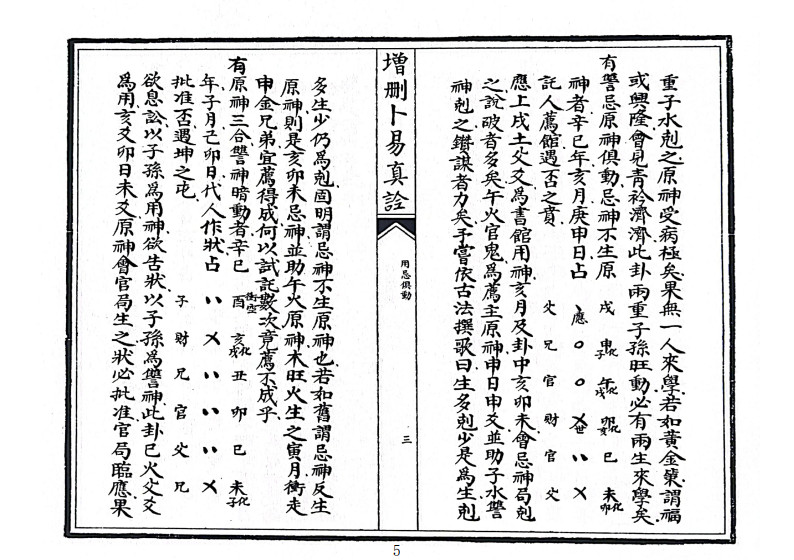 重子水剋之原神受病極矣果無一人來學若如黃金策謂福
或興隆會見青衿濟濟此卦兩重子孫旺動必有兩生來學矣
有讐忌原神俱動忌神不生原
神者辛巳年亥月庚申日占
託人薦館遇否之賁
戌 申化子 午化戌 卯化亥 巳 未化卯
應 世
父 兄 官 財 官 父
應上戌土父爻爲書館用神亥月及卦中亥卯未會忌神局剋
之說破者多矣午火官鬼爲薦主原神申日申爻並助子水讐
神剋之鑽謀者力矣予嘗依古法撰歌曰生多剋少是爲生剋
增刪卜易真詮
用忌俱動
三
多生少仍爲剋固明謂忌神不生原神也若如舊謂忌神反生
原神則是亥卯未忌神並助午火原神木旺火生之寅月衝走
申金兄弟宜薦得成何以試託數次竟薦不成乎
有原神三合讐神暗動者辛巳
年子月己卯日代人作狀占
批准否遇坤之屯
酉衝空 亥化戌 丑 卯 巳 未化子
子 財 兄 官 父 兄
欲息訟以子孫爲用神欲告狀以子孫爲讐神此卦巳火父爻
爲用亥爻卯日未爻原神會官局生之狀必批准官局臨應果
5